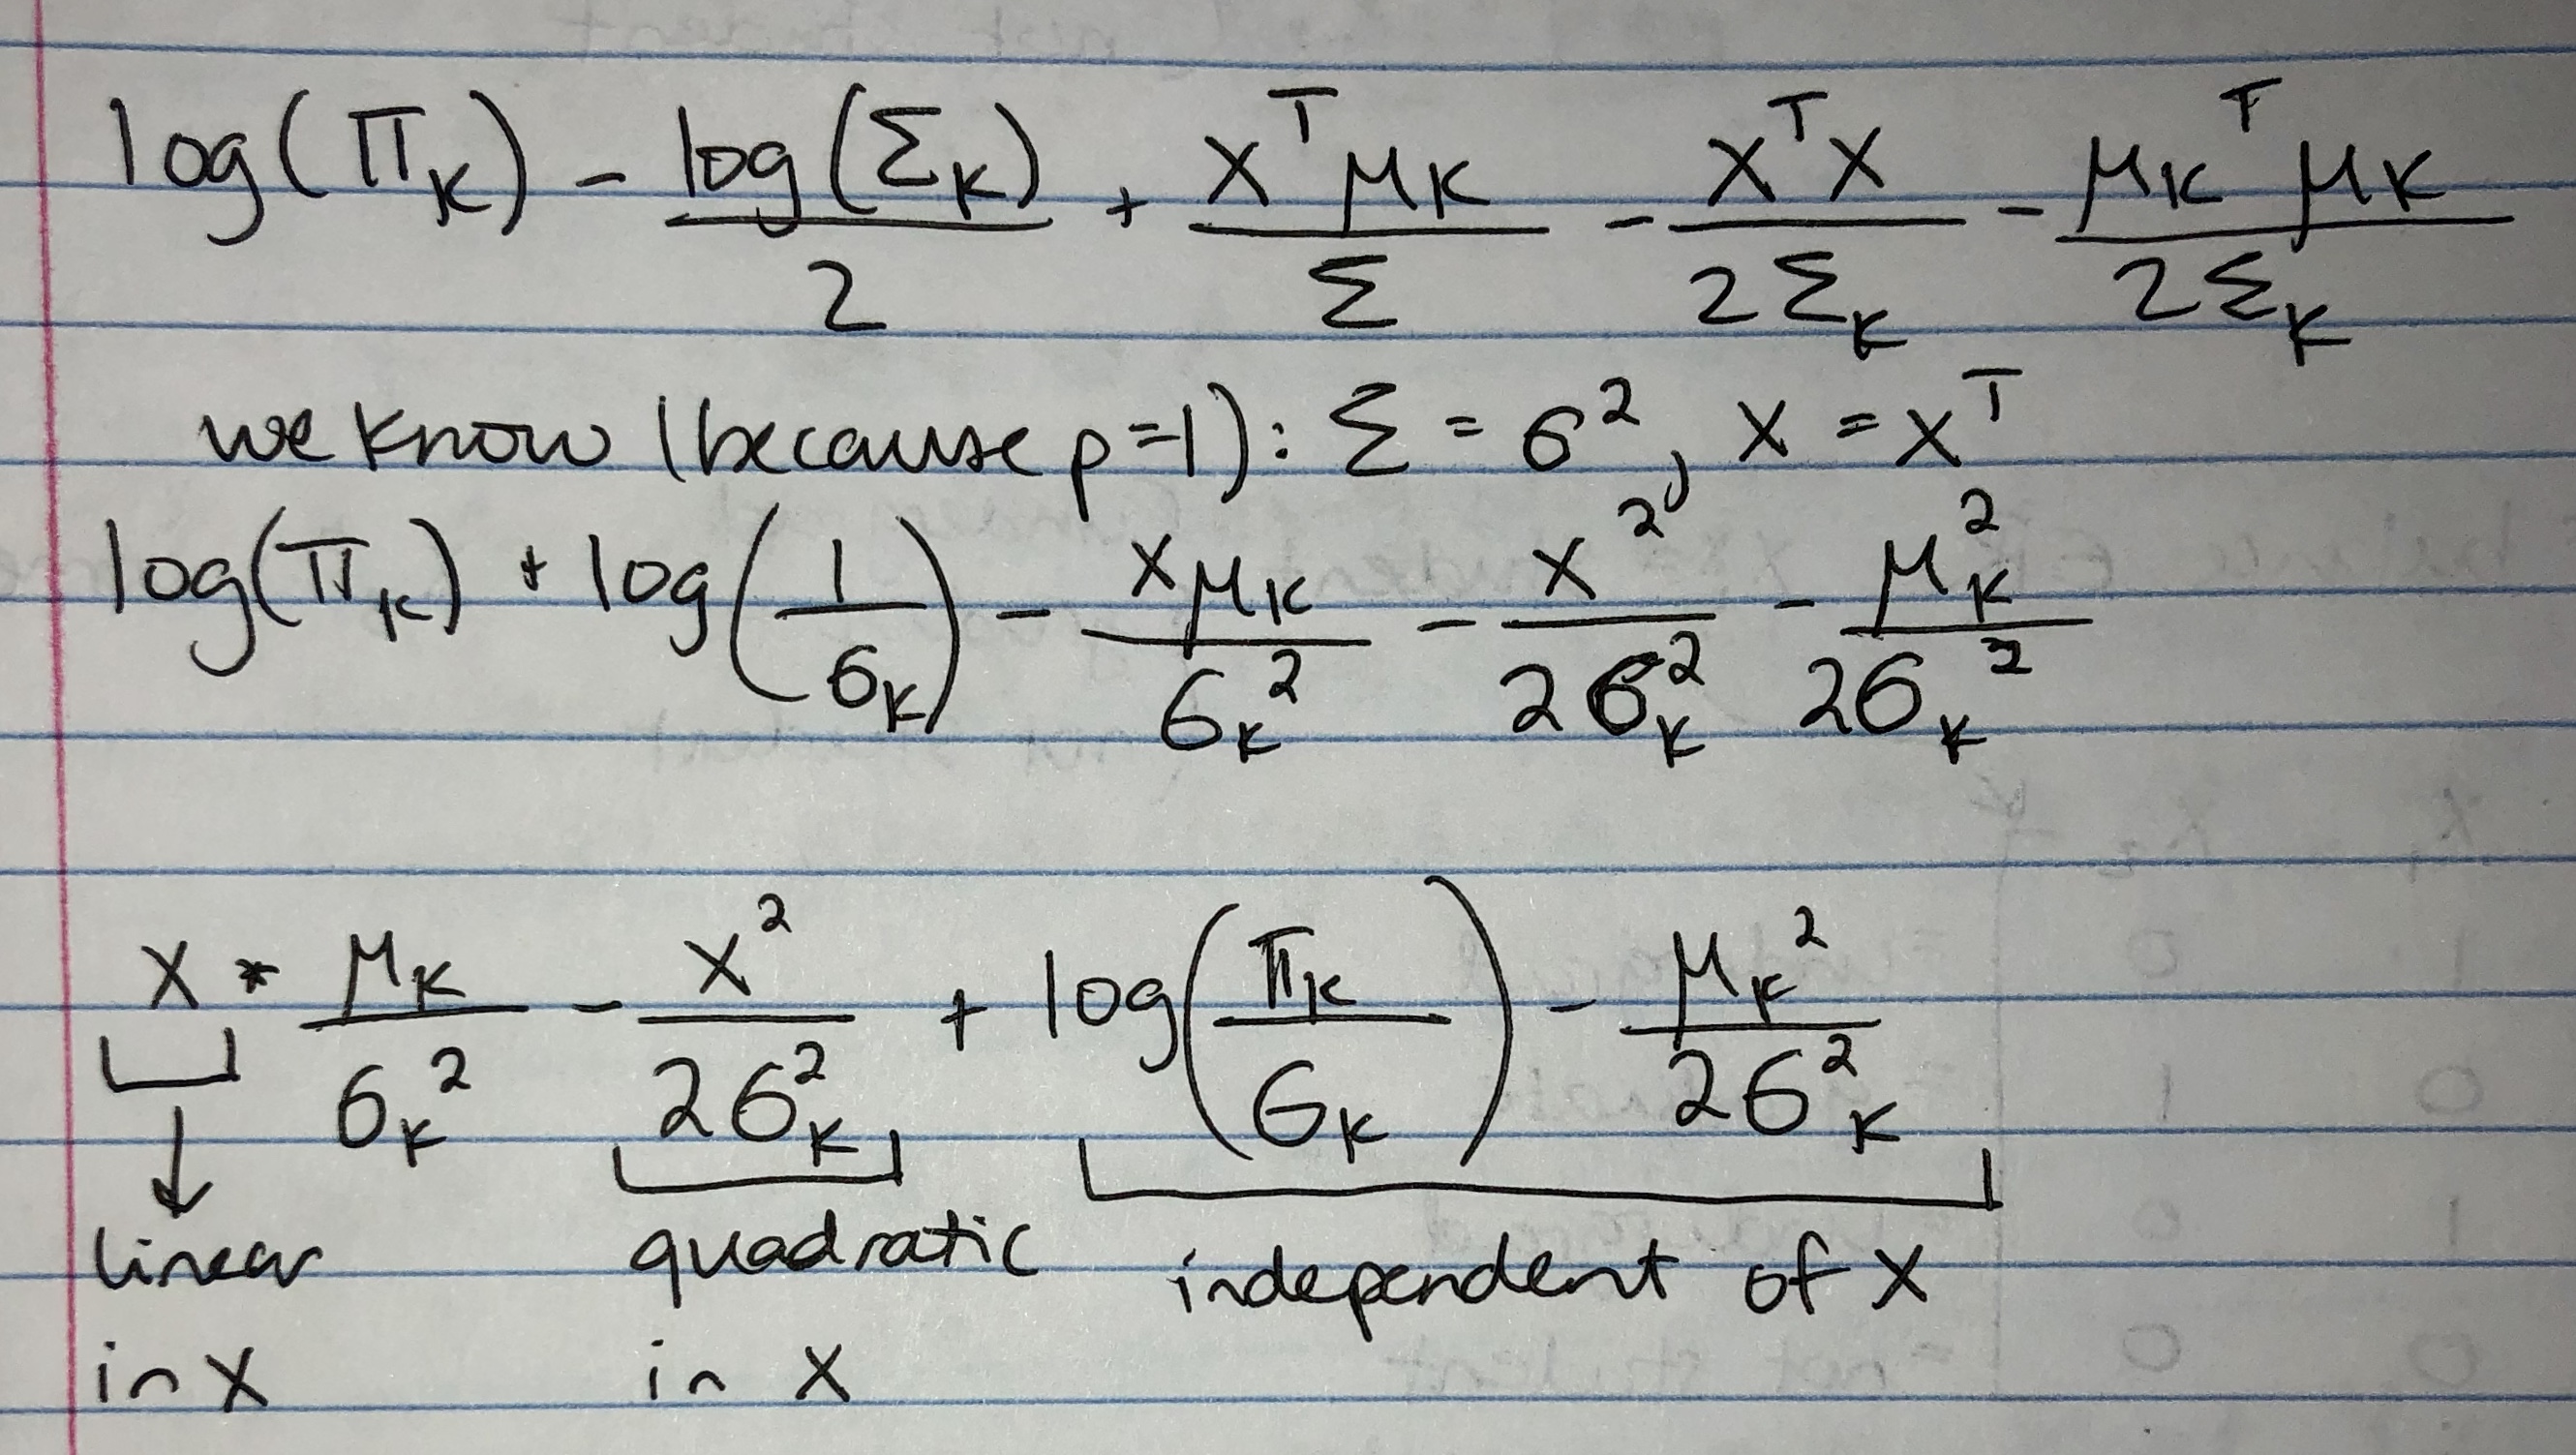 log(π_K) - log(Σ_K)/2 + x^T μ_K/Σ - x^T x/2Σ_K - μ_K^T μ_K/2Σ_K
we know (because p=1): Σ = σ^2, x = x^T
log(π_K) + log(1/σ_K) - xμ_K/σ_K^2 - x^2/2σ_K^2 - μ_K^2/2σ_K^2
x * μ_K/σ_K^2 - x^2/2σ_K^2 + log(π_K/σ_K) - μ_K^2/2σ_K^2
linear in x
quadratic in x
independent of x